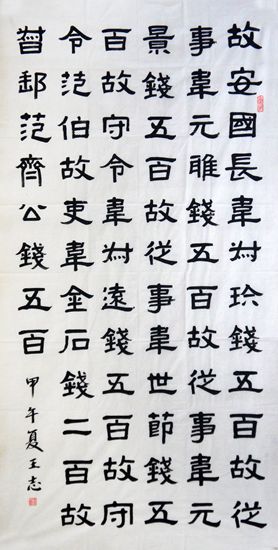 故安國長韋叔珍錢五百故從
事韋元雅錢五百故從事韋元
景錢五百故從事韋世節錢五
百故守令韋叔遠錢五百故守
令范伯故吏韋金石錢二百故
督郵范齊公錢五百
甲午夏王志